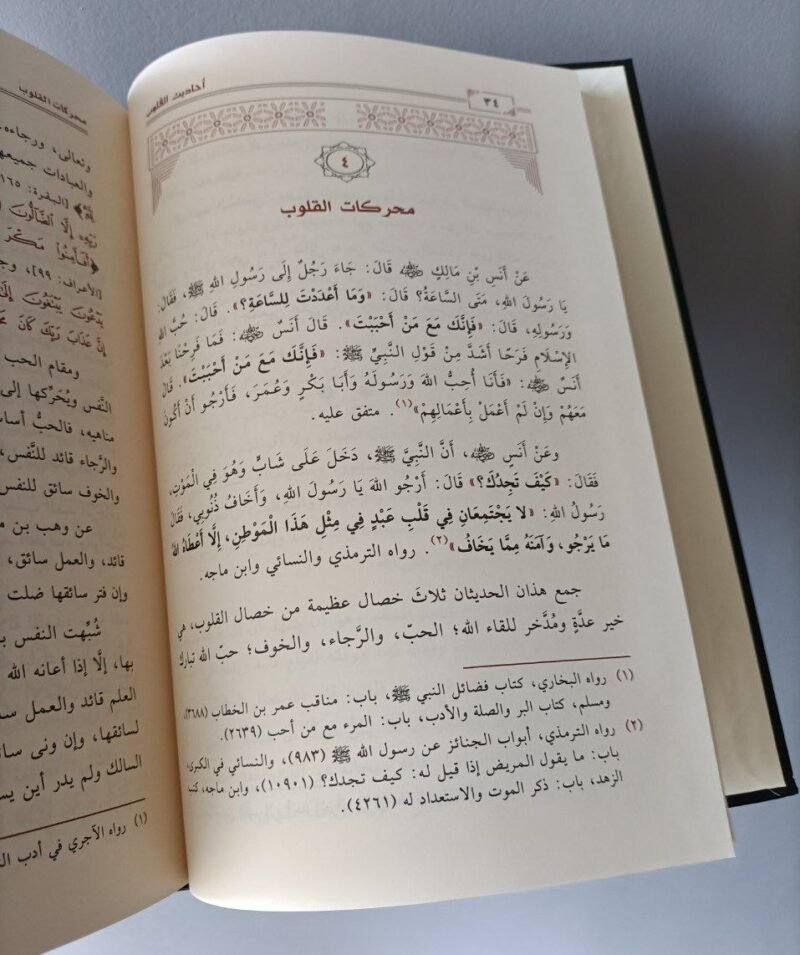 ٣٤
أحاديث القلوب
٤
محركات القلوب
عَنْ أَنَسِ بْنِ مَالِكٍ ﵁ قَالَ: جَاءَ رَجُلٌ إِلَى رَسُولِ اللهِ ﷺ، فَقَالَ:
يَا رَسُولَ اللهِ، مَتَى السَّاعَةُ؟ قَالَ: «وَمَا أَعْدَدْتَ لِلسَّاعَةِ؟». قَالَ: حُبَّ اللهِ
وَرَسُولِهِ، قَالَ: «فَإِنَّكَ مَعَ مَنْ أَحْبَبْتَ». قَالَ أَنَسٌ ﵁: فَمَا فَرِحْنَا بَعْدَ
الإِسْلَامِ فَرَحًا أَشَدَّ مِنْ قَوْلِ النَّبِيِّ ﷺ: «فَإِنَّكَ مَعَ مَنْ أَحْبَبْتَ». قَالَ
أَنَسٌ ﵁: «فَأَنَا أُحِبُّ اللهَ وَرَسُولَهُ وَأَبَا بَكْرٍ وَعُمَرَ، فَأَرْجُو أَنْ أَكُونَ
مَعَهُمْ وَإِنْ لَمْ أَعْمَلْ بِأَعْمَالِهِمْ»(١). متفق عليه.
وعَنْ أَنَسٍ ﵁، أَنَّ النَّبِيَّ ﷺ، دَخَلَ عَلَى شَابٍّ وَهُوَ فِي الْمَوْتِ،
فَقَالَ: «كَيْفَ تَجِدُكَ؟» قَالَ: أَرْجُو اللهَ يَا رَسُولَ اللهِ، وَأَخَافُ ذُنُوبِي، فَقَالَ
رَسُولُ اللهِ: «لَا يَجْتَمِعَانِ فِي قَلْبِ عَبْدٍ فِي مِثْلِ هَذَا الْمَوْطِنِ، إِلَّا أَعْطَاهُ اللهُ
مَا يَرْجُو، وَآمَنَهُ مِمَّا يَخَافُ»(٢). رواه الترمذي والنسائي وابن ماجه.
جمع هذان الحديثان ثلاثَ خصال عظيمة من خصال القلوب، هي
خير عدَّةٍ ومُدَّخر للقاء الله؛ الحبّ، والرَّجاء، والخوف؛ حبّ الله تبارك
(١) رواه البخاري، كتاب فضائل النبي ﷺ، باب: مناقب عمر بن الخطاب (٣٦٨٨)،
ومسلم، كتاب البر والصلة والأدب، باب: المرء مع من أحب (٢٦٣٩).
(٢) رواه الترمذي، أبواب الجنائز عن رسول الله ﷺ (٩٨٣)، والنسائي في الكبرى،
باب: ما يقول المريض إذا قيل له: كيف تجدك؟ (١٠٩٠١)، وابن ماجه، كتاب
الزهد، باب: ذكر الموت والاستعداد له (٤٢٦١).
محركات القلوب
وتعالى، ورجاءه
والعبادات جميعه
[البقرة: ١٦٥
رَبِّهِ إِلَّا الضَّالُّونَ
أَفَأَمِنُوا مَكْرَ
[الأعراف: ٩٩]، وج
يَدْعُونَ يَبْتَغُونَ إِلَى
إِنَّ عَذَابَ رَبِّكَ كَانَ
ومقام الحب
النَّفْس ويُحَرِّكها إلى
مناهيه، فالحبُّ أساس
والرَّجاء قائد للنَّفس
والخوف سائق للنفس
عن وهب بن م
قائد، والعمل سائق،
وإن فتر سائقها ضلت
شُبِّهت النفس ب
بها، إلَّا إذا أعانه الله
العلم قائد والعمل س
لسائقها، وإن ونى سائ
السالك ولم يدر أين يس
(١) رواه الآجري في أدب